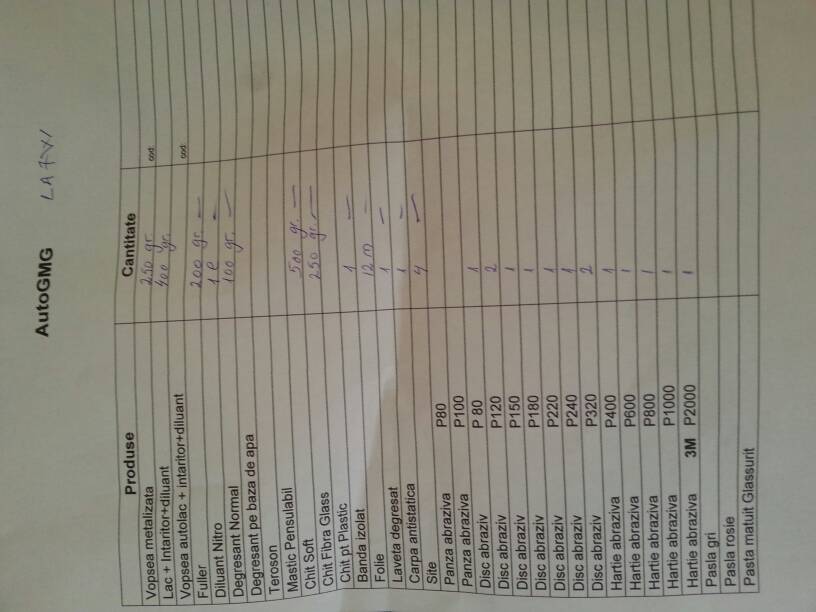 AutoGMG
Produse Cantitate
Vopsea metalizata 250 gr. cod:
Lac + Intaritor+diluant 400 gr.
Vopsea autolac + intaritor+diluant cod:
Fuller 200 gr. —
Diluant Nitro 1 l —
Degresant Normal 100 gr. —
Degresant pe baza de apa
Teroson
Mastic Pensulabil 500 gr. —
Chit Soft 250 gr. —
Chit Fibra Glass
Chit pt Plastic 1 —
Banda izolat 12 m —
Folie 1 —
Laveta degresat 1 —
Carpa antistatica 4 —
Site
Panza abraziva P80
Panza abraziva P100
Disc abraziv P 80 1
Disc abraziv P120 2
Disc abraziv P150 1
Disc abraziv P180 1
Disc abraziv P220 1
Disc abraziv P240 1
Disc abraziv P320 2
Hartie abraziva P400 1
Hartie abraziva P600 1
Hartie abraziva P800 1
Hartie abraziva P1000 1
Hartie abraziva 3M P2000 1
Pasla gri
Pasla rosie
Pasta matuit Glassurit